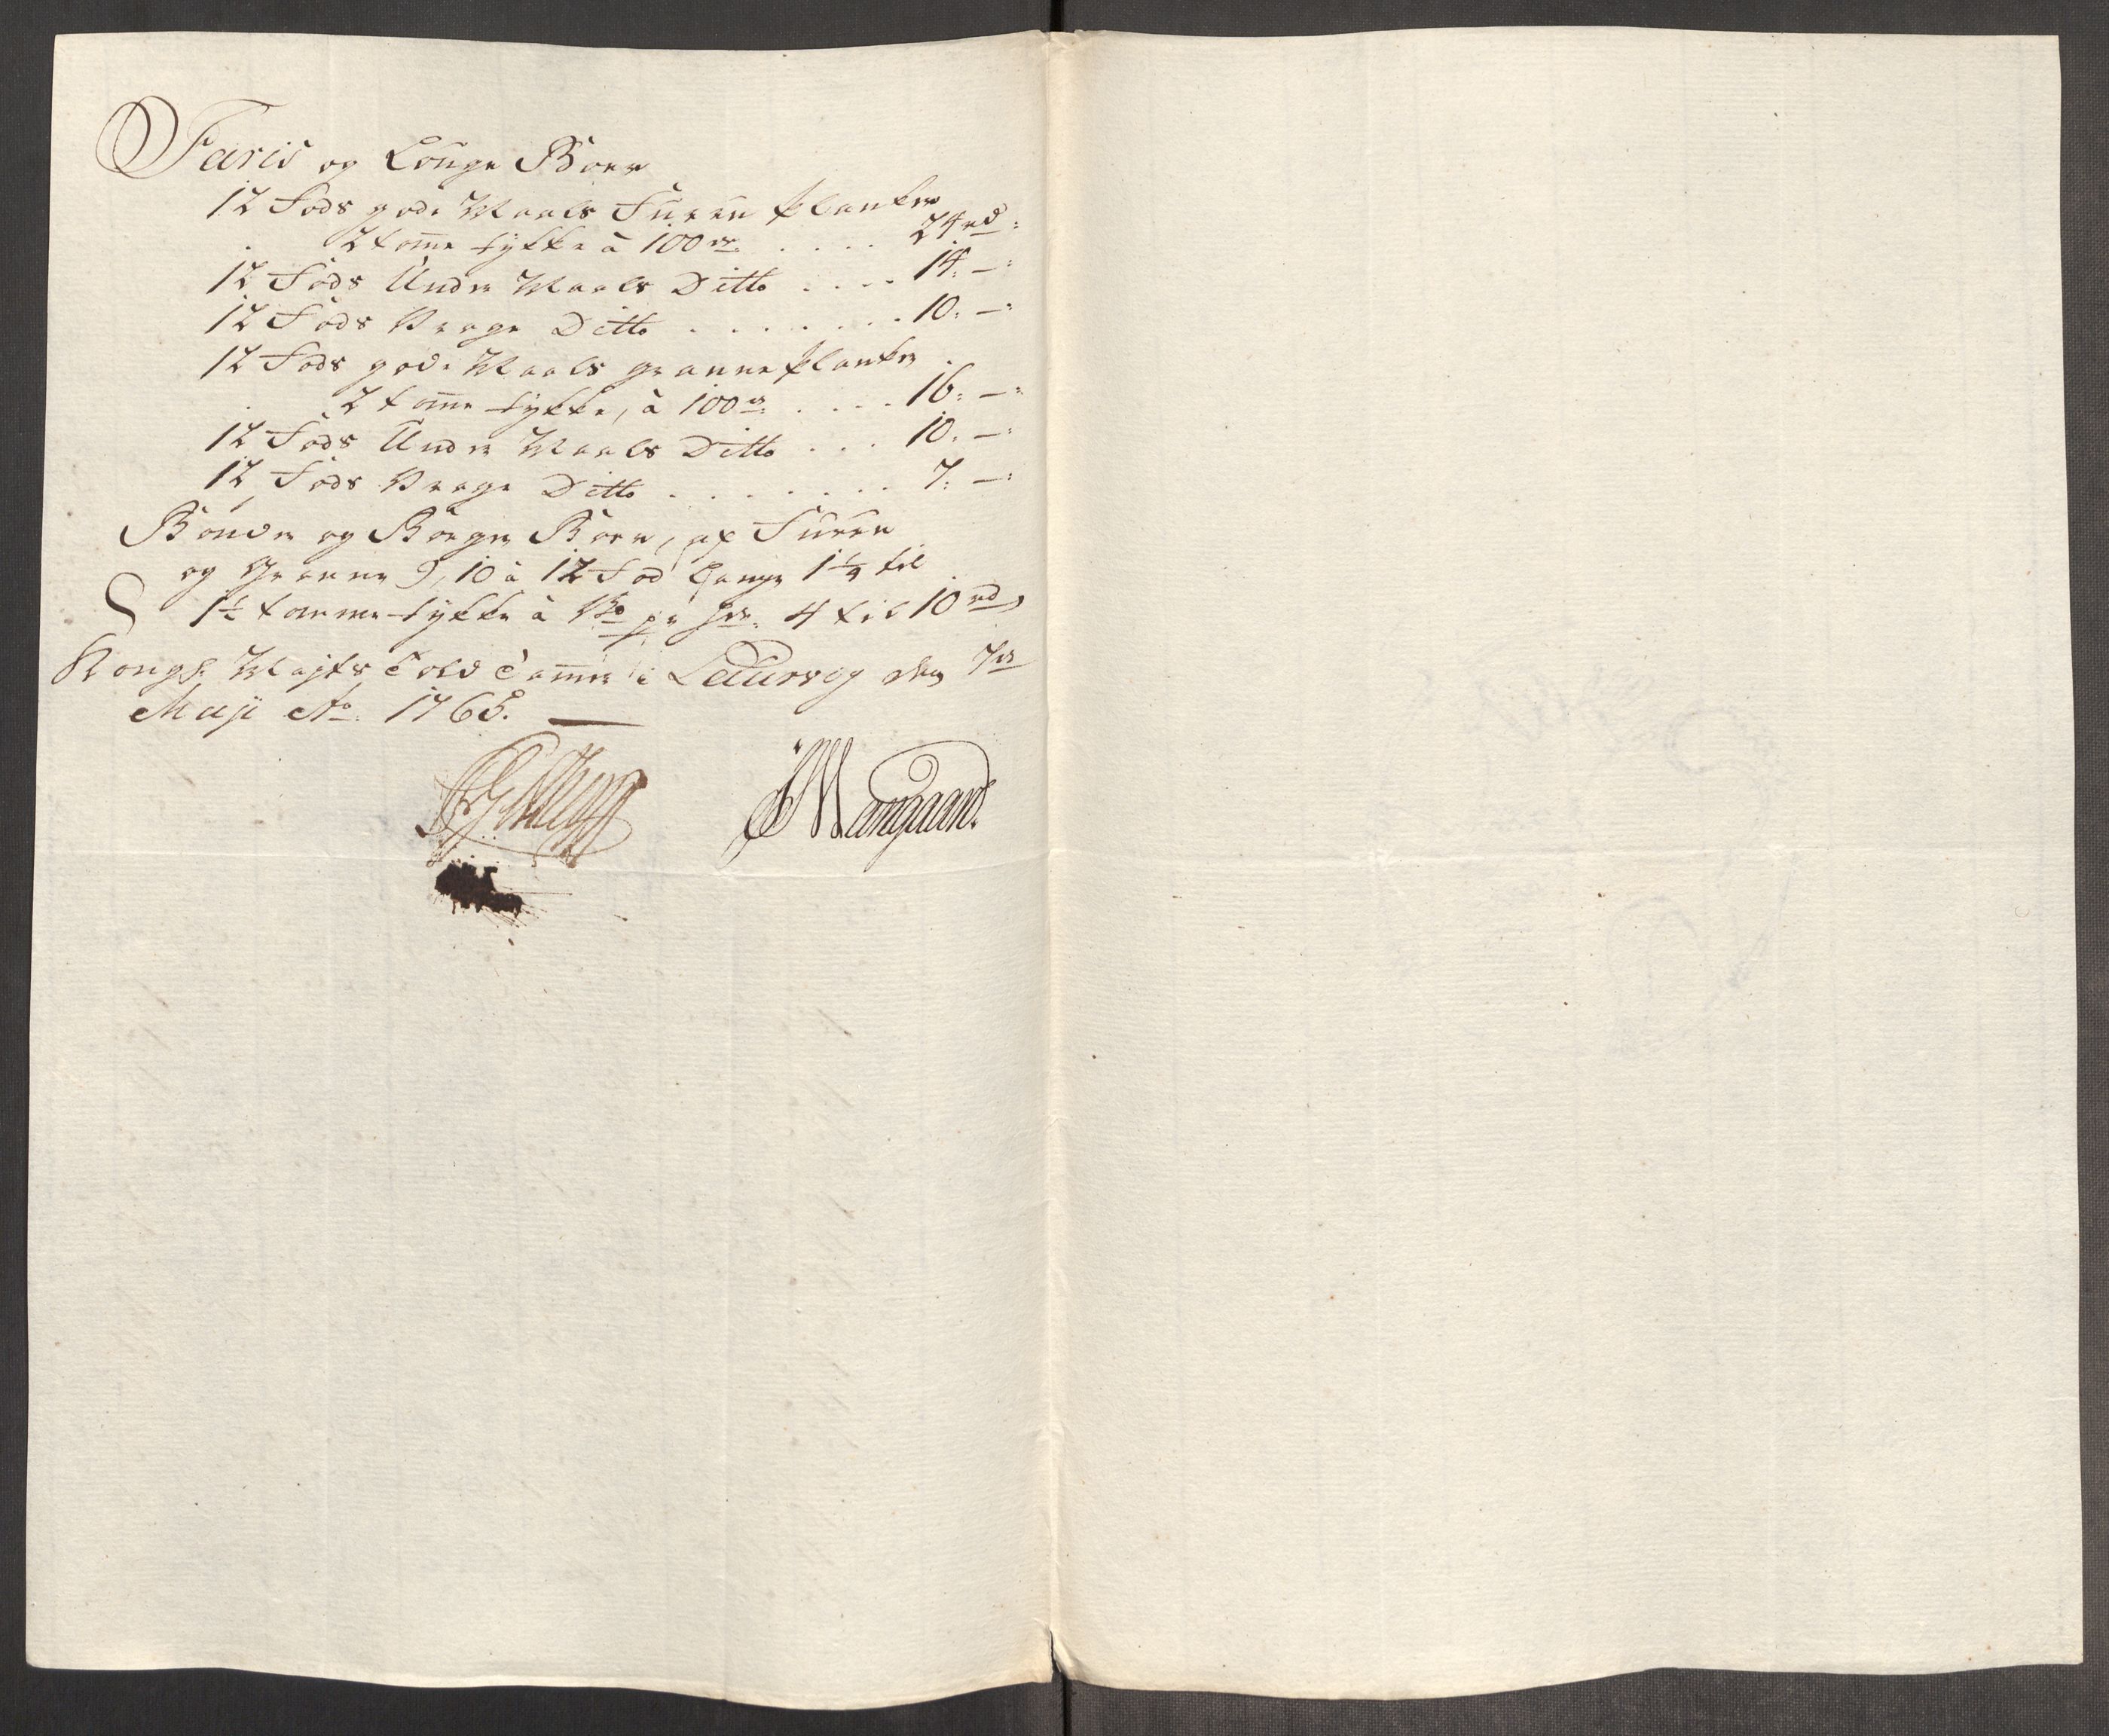 Faris og Louge Boer
12 Fods gode Maals Furru Planker
2 tomme tykke à 100de .... 24 rd:
12 Fods Under Maals Ditto .... 14: —:
12 Fods Vrage Ditto ........ 10: —:
12 Fods gode Maals granne Planker
2 tomme tykke, à 100de .... 16: —:
12 Fods Under Maals Ditto ... 10: —:
12 Fods Vrage Ditto ........ 7: —:
Bønder og Børge Boer, af Furru
og Granne 9, 10 à 12 Fod Lange 1 1/4 til
1 1/2 tomme tykke à 4 til 10 rd
Kongl: Majts Told Camer i Laurvig den 7de
Maji Ao: 1765.